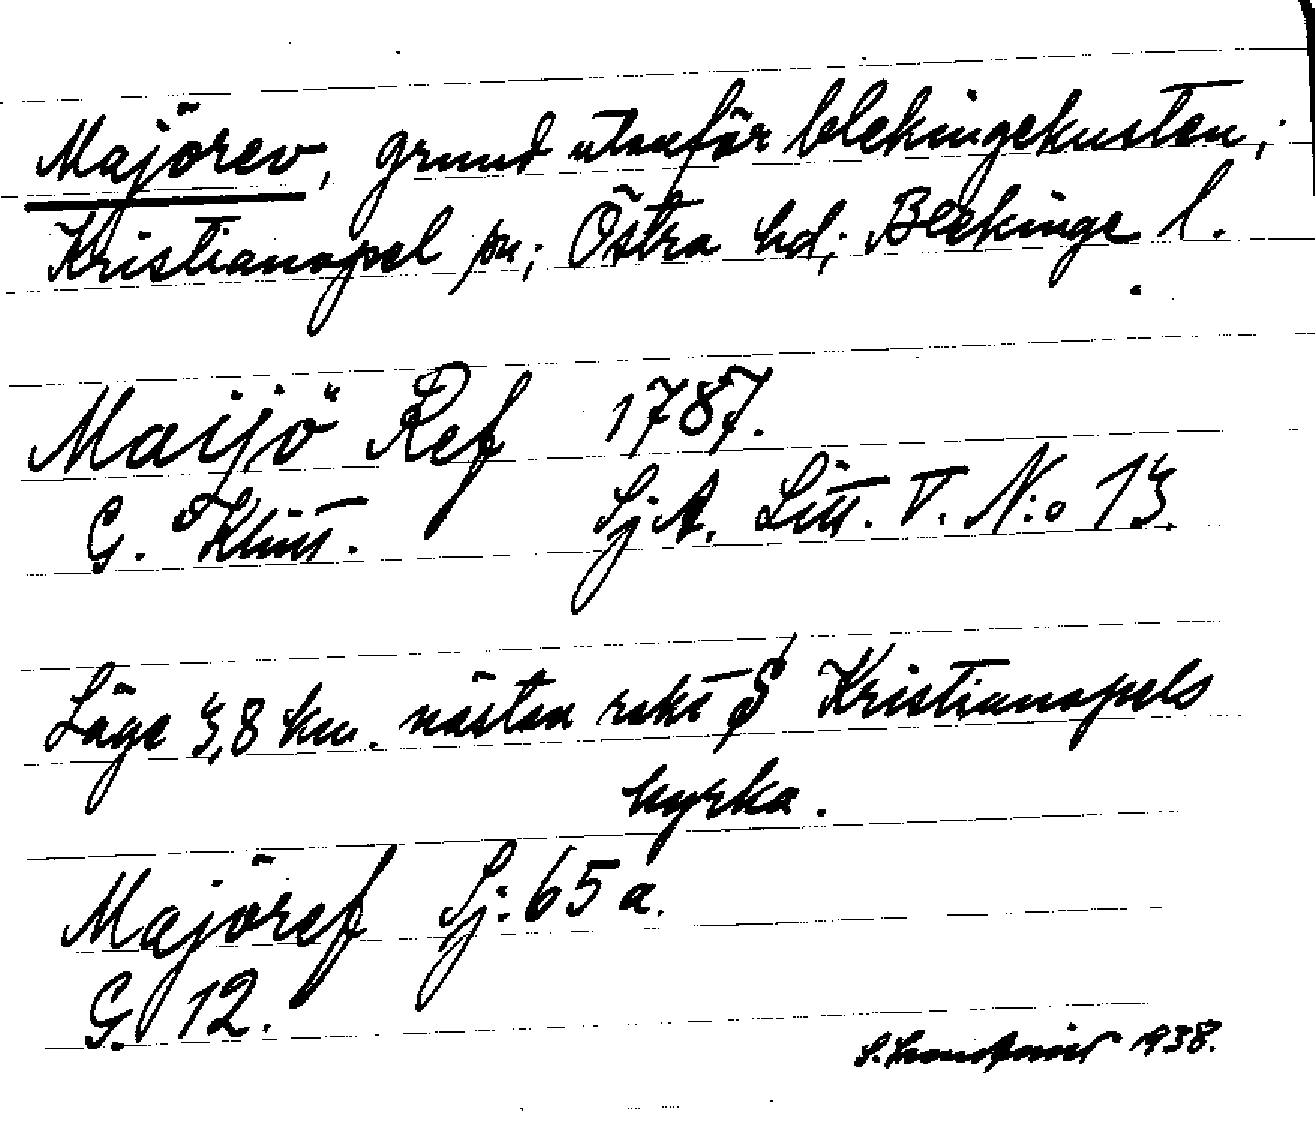 Majörev, grund utanför blekingekusten;
Kristianopel sn; Östra hd; Blekinge l.
Maijö Ref 1787.
G. af Klint. Sj.A. Litt. V. N:o 13.
Läge 3,8 km. nästan rakt S Kristianopels
kyrka.
Majöref Sj: 65 a.
G. 12.
1938.